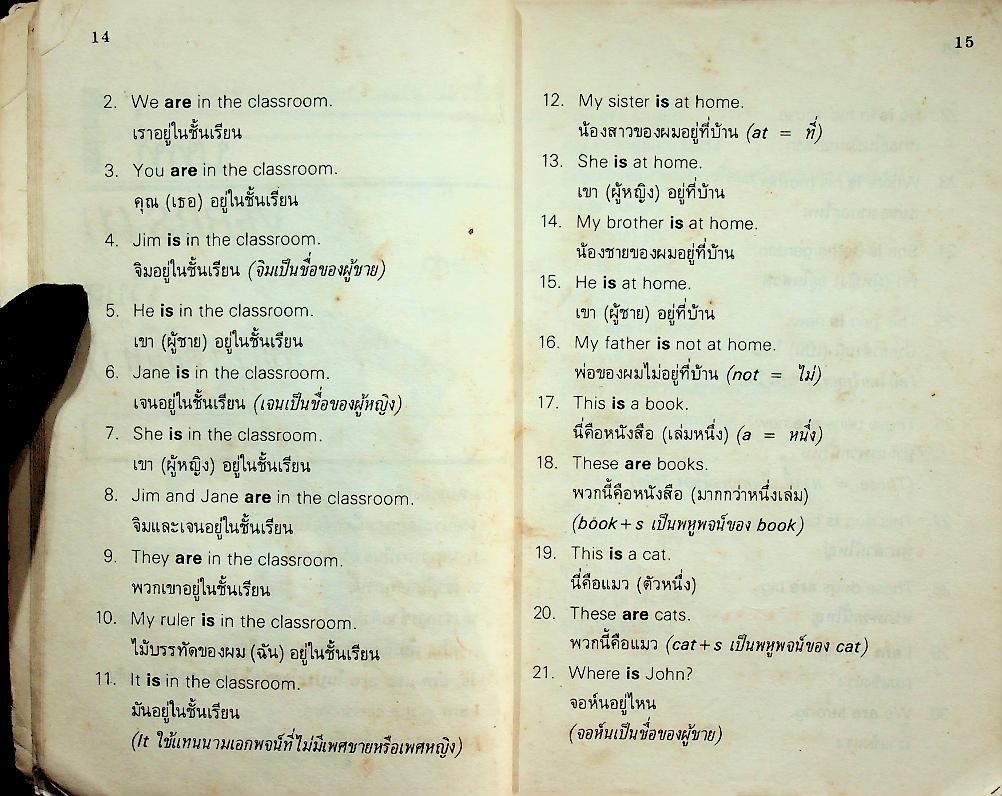 14
2. We are in the classroom.
เราอยู่ในชั้นเรียน
3. You are in the classroom.
คุณ (เธอ) อยู่ในชั้นเรียน
4. Jim is in the classroom.
จิมอยู่ในชั้นเรียน (จิมเป็นชื่อของผู้ชาย)
5. He is in the classroom.
เขา (ผู้ชาย) อยู่ในชั้นเรียน
6. Jane is in the classroom.
เจนอยู่ในชั้นเรียน (เจนเป็นชื่อของผู้หญิง)
7. She is in the classroom.
เขา (ผู้หญิง) อยู่ในชั้นเรียน
8. Jim and Jane are in the classroom.
จิมและเจนอยู่ในชั้นเรียน
9. They are in the classroom.
พวกเขาอยู่ในชั้นเรียน
10. My ruler is in the classroom.
ไม้บรรทัดของผม (ฉัน) อยู่ในชั้นเรียน
11. It is in the classroom.
มันอยู่ในชั้นเรียน
(It ใช้แทนนามเอกพจน์ที่ไม่มีเพศชายหรือเพศหญิง)
15
12. My sister is at home.
น้องสาวของผมอยู่ที่บ้าน (at = ที่)
13. She is at home.
เขา (ผู้หญิง) อยู่ที่บ้าน
14. My brother is at home.
น้องชายของผมอยู่ที่บ้าน
15. He is at home.
เขา (ผู้ชาย) อยู่ที่บ้าน
16. My father is not at home.
พ่อของผมไม่อยู่ที่บ้าน (not = ไม่)
17. This is a book.
นี่คือหนังสือ (เล่มหนึ่ง) (a = หนึ่ง)
18. These are books.
พวกนี้คือหนังสือ (มากกว่าหนึ่งเล่ม)
(book+s เป็นพหูพจน์ของ book)
19. This is a cat.
นี่คือแมว (ตัวหนึ่ง)
20. These are cats.
พวกนี้คือแมว (cat+s เป็นพหูพจน์ของ cat)
21. Where is John?
จอห์นอยู่ไหน
(จอห์นเป็นชื่อของผู้ชาย)